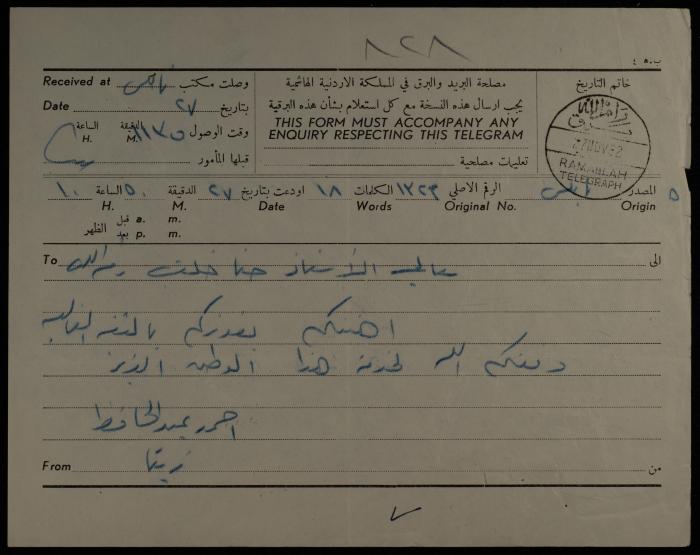 ٨٢٨
ب.ه ٤
Received at وصلت مكتب
مصلحة البريد والبرق في المملكة الاردنية الهاشمية
خاتم التاريخ
Date ٢٧ بتاريخ
يجب ارسال هذه النسخة مع كل استعلام بشأن هذه البرقية
الساعة الدقيقة ١١٣٥ وقت الوصول
H. M.
THIS FORM MUST ACCOMPANY ANY
ENQUIRY RESPECTING THIS TELEGRAM
قبلها المأمور
تعليمات مصلحية
رام الله
27 NOV 52
RAMALLAH
TELEGRAPH
المصدر نابلس الرقم الاصلي ١٣٢٣ الكلمات ١٨ اودعت بتاريخ ٢٧ الدقيقة ٥٠ الساعة ١٠
H. M. Date Words Original No. Origin ٥
قبل a. m.
الظهر
بعد p. m.
To معالي الأستاذ حنا خلف رام الله الى
اهنئكم بفوزكم بالثقة الغالية
وفقكم الله لخدمة هذا الوطن العزيز
احمد عبد الحافظ
From زيتا من